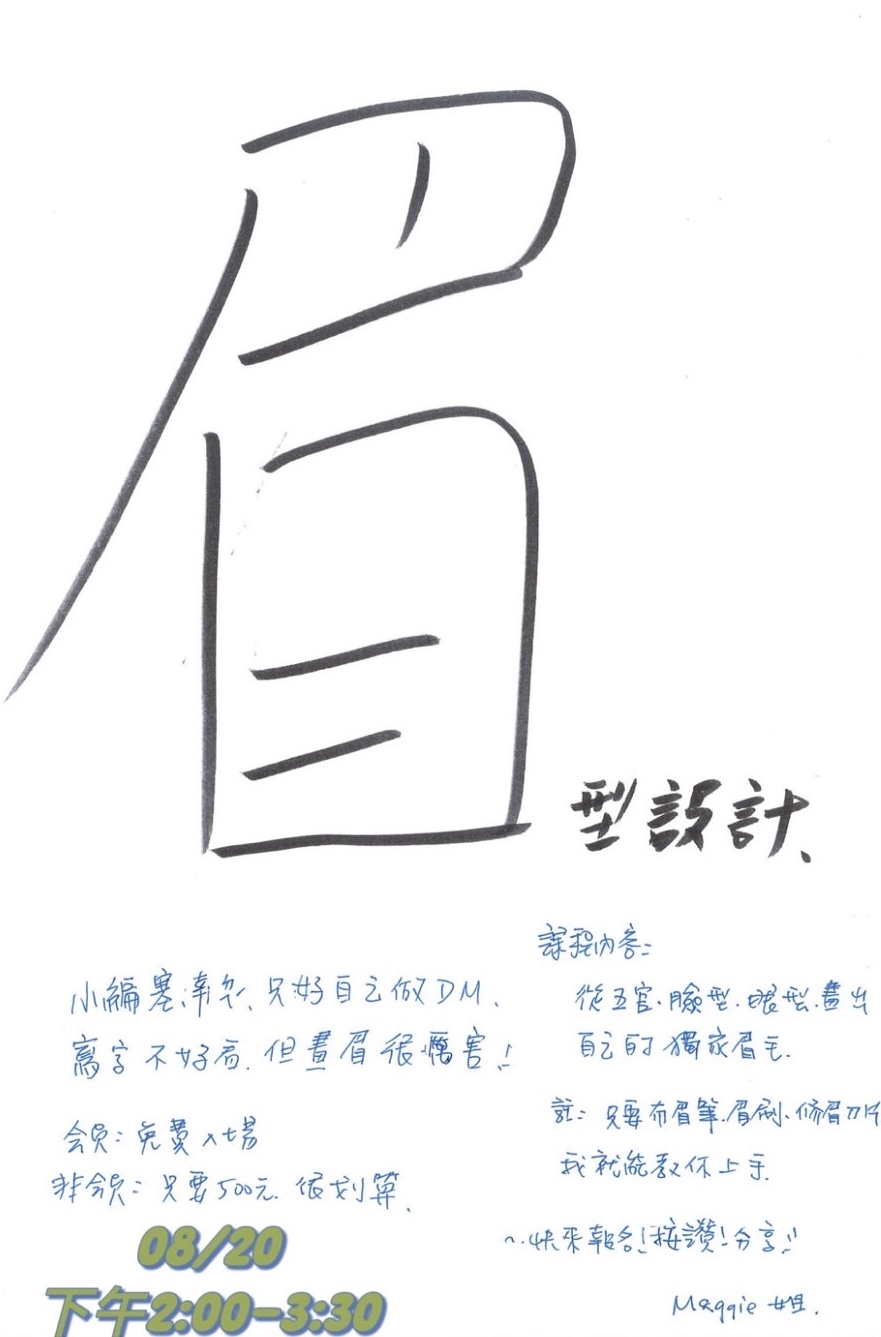 眉
型設計、
小編塞車ㄌ、只好自己做DM、
寫字不好看、但畫眉很厲害!
会員：免費入場
非会員：只要500元、很划算、
08/20
下午2:00-3:30
課程內容：
從五官、臉型、眼型、畫出
自己的獨家眉毛、
註：只要有眉筆、眉刷、修眉刀片
我就能教你上手、
～快來報名!按讚!分享!!
Maggie 姐、